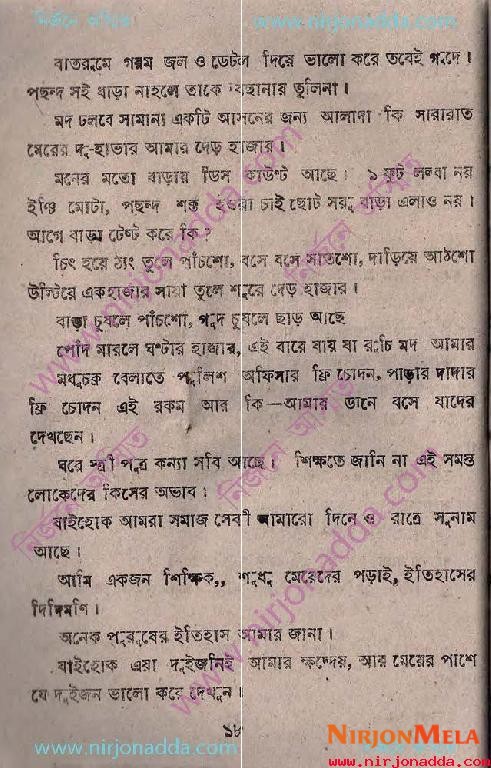 নির্জনে অস্মিত
www.nirjonadda.com
বাতরুমে গরম জল ও ডেটল দিয়ে ভালো করে তবেই গুদে।
পছন্দ সই বাড়া নাহলে তাকে বিছানায় তুলিনা।
মদ চলবে সামান্য একটি আসনের জন্য আলাদা কি সারারাত
মেয়ের দু-হাজার আমার দেড় হাজার।
মনের মতো বাড়ায় ডিস কাউন্ট আছে। ১ ফুট লম্বা নয়
ইঞ্চি মোটা, পছন্দ শক্ত হওয়া চাই ছোট সরু বাড়া এলাও নয়।
আগে বাড়া টেস্ট করে কি?
চিৎ হয়ে ঠ্যাং তুলে পাঁচশো, বসে বসে সাতশো, দাড়িয়ে আঠশো
উল্টিয়ে একহাজার সায়া তুলে শুয়ে দেড় হাজার।
বাড়া চুষলে পাঁচশো, গুদ চুষলে ছাড় আছে
পোঁদ মারলে ঘণ্টার হাজার, এই বারে যায় যা রুচি মদ আমার
মধুচক্র বেলাতে পুলিশ অফিসার ফ্রি চোদন, পাড়ার দাদার
ফ্রি চোদন এই রকম আর কি—আমার ডানে বসে যাদের
দেখছেন।
ঘরে স্ত্রী পুত্র কন্যা সবি আছে। শিক্ষতে জানি না এই সমস্ত
লোকেদের কিসের অভাব।
যাইহোক আমরা সমাজ সেবী আমারো দিনে ও রাত্রে সুনাম
আছে।
আমি একজন শিক্ষিক,, শুধু মেয়েদের পড়াই, ইতিহাসের
দিদিমণি।
অনেক পুরুষের ইতিহাস আমার জানা।
যাইহোক এরা দুইজনিই আমার ক্ষদ্দের, আর মেয়ের পাশে
যে দুইজন ভালো করে দেখুন।
১৮
www.nirjonadda.com
NIRJONMELA
www.nirjonadda.com